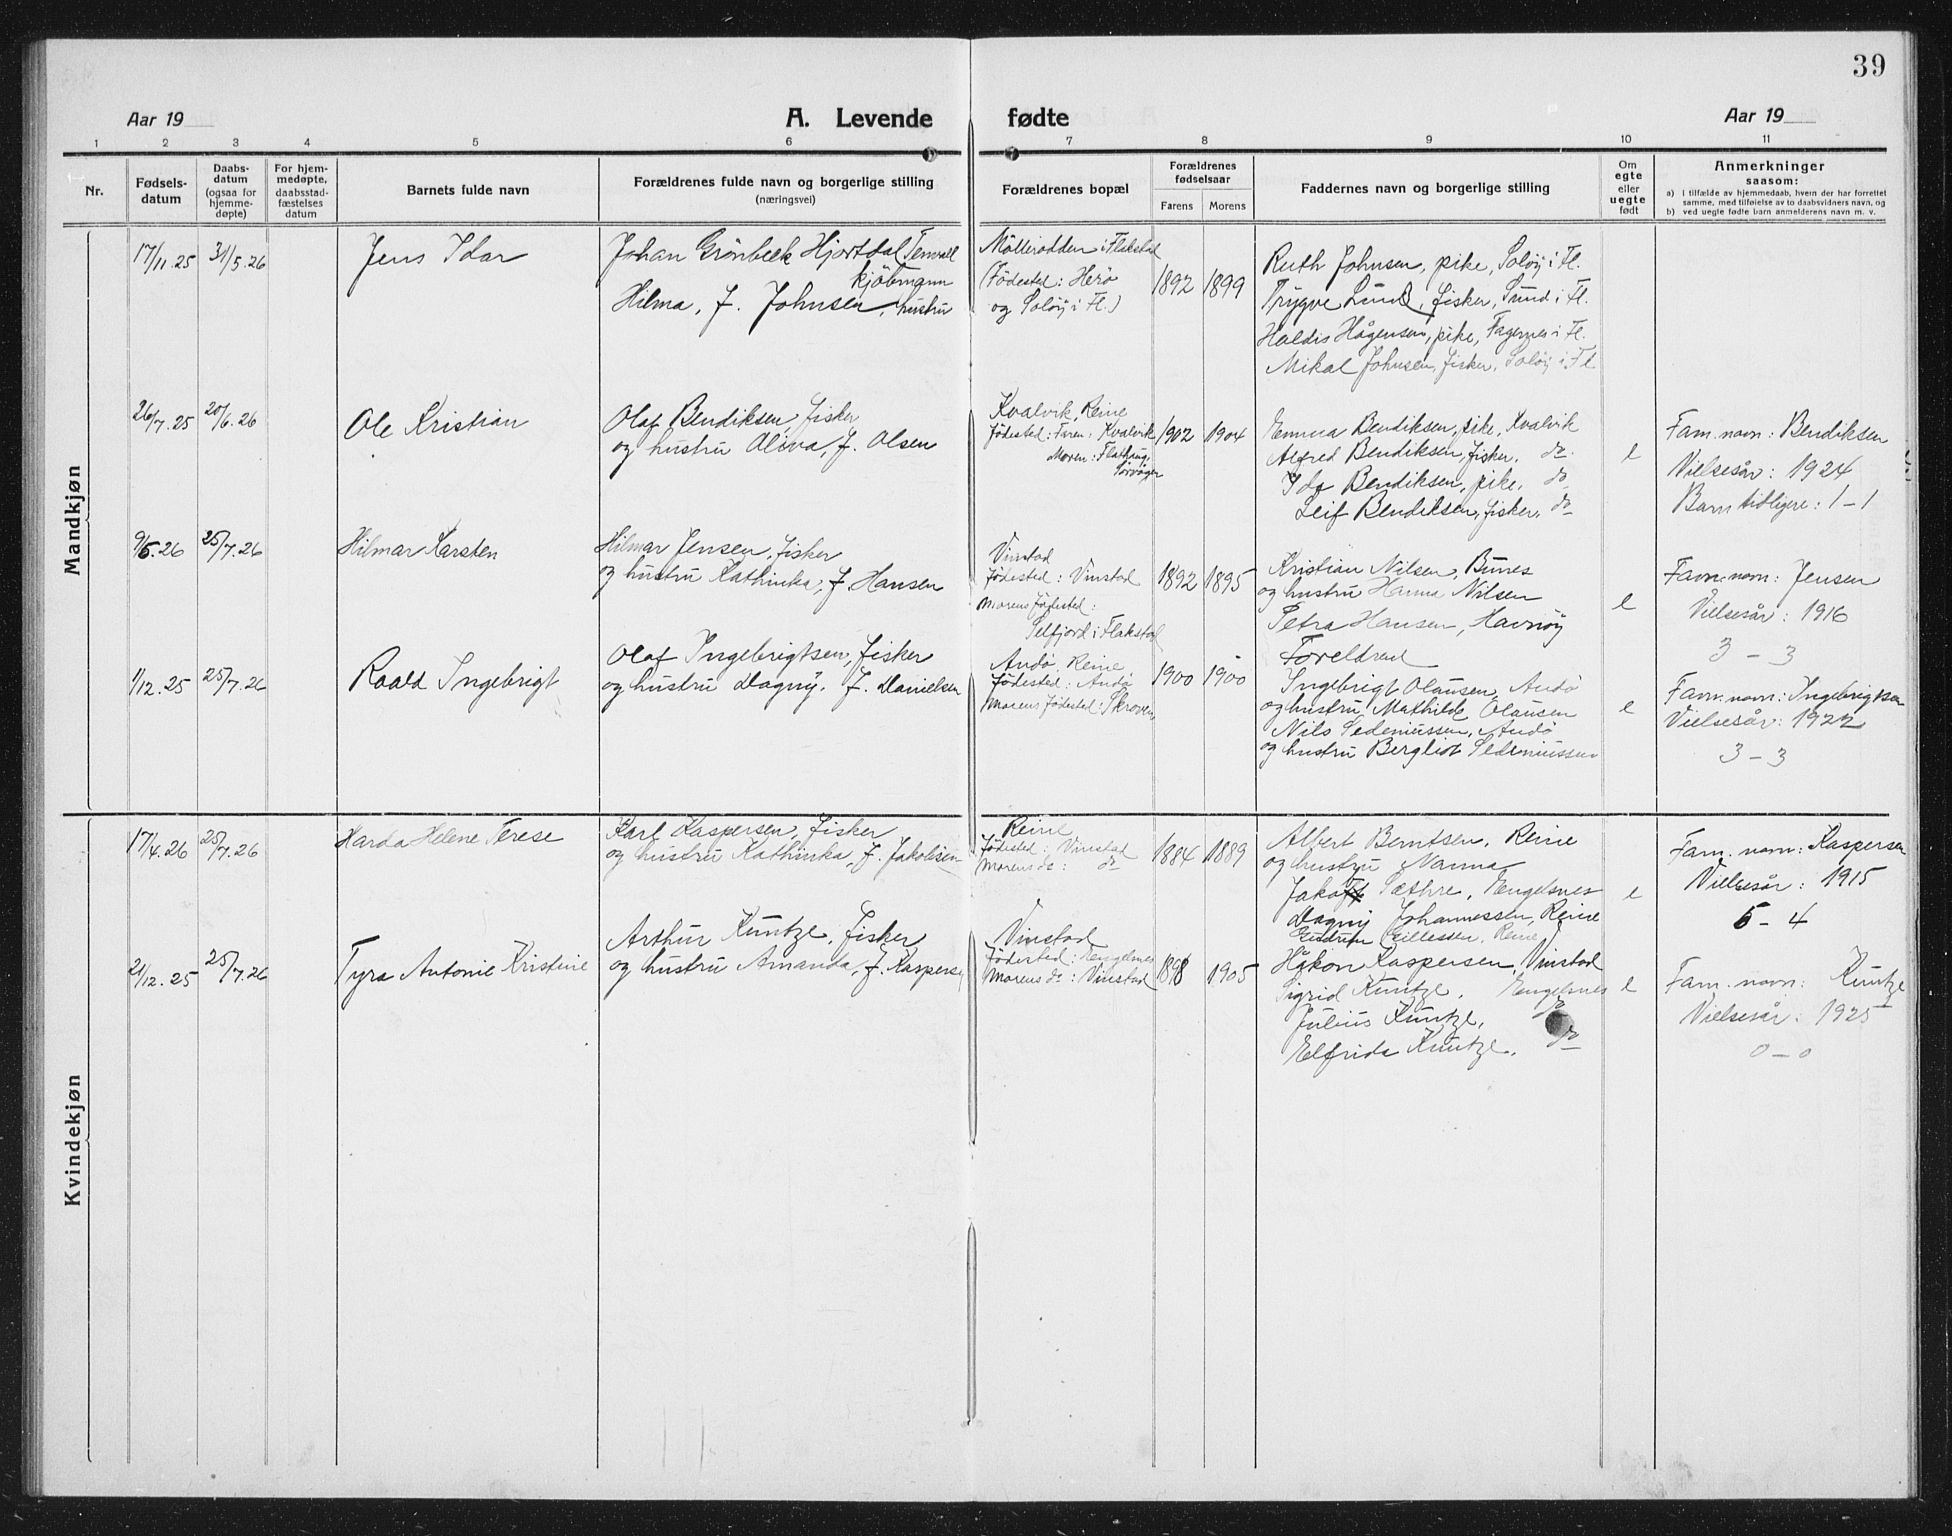 39
Aar 19
A. Levende fødte
Aar 19
1 2 3 4 5 6 7 8 9 10 11
Nr.
Fødsels-
datum
Daabs-
datum
(ogsaa for
hjemme-
døpte)
For hjem-
medøpte,
daabsstad-
fæstelses
datum
Barnets fulde navn
Forældrenes fulde navn og borgerlige stilling
(næringsvei)
Forældrenes bopæl
Forældrenes
fødselsaar
Farens Morens
Faddernes navn og borgerlige stilling
Om
egte
eller
uegte
født
Anmerkninger
saasom:
a) I tilfælde av hjemmedaab, hvem der har forrettet
samme, med tilføielse av to daabsvidners navn, og
b) ved uegte fødte barn anmelderens navn m. v.
Mandkjøn
17/11.25 31/5.26
Jens Idar
Johan Grönbeck Hjortdal
kjöbmann
Hilma, f. Johnsen, hustru
i Flakstad
(Födested: Herö
og Solöy i Fl.)
1892 1899
Ruth Johnsen, pike, Solöy i Fl.
Trygve Lund, fisker, Sund i Fl.
Haldis Hågensen, pike, Fagernes i Fl.
Mikal Johnsen, fisker, Solöy i Fl
26/7.25 20/6.26
Ole Kristian
Olaf Bendiksen, fisker
og hustru Oliva, f. Olsen
Kvalvik, Reine
Födested: Faren: Kvalvik
Moren: Flathaug,
Sörvågen
1902 1904
Emma Bendiksen, pike, Kvalvik
Alfred Bendiksen, fisker, do
Ida Bendiksen, pike, do
Leif Bendiksen, fisker, do
e
Fam. navn: Bendiksen
Vielsesår: 1924
Barn tidligere: 1-1
9/5.26 25/7.26
Hilmar Karsten
Hilmar Jensen, fisker
og hustru Kathinka, f. Hansen
Vinstad
Födested: Vinstad
Morens födested:
Selfjord i Flakstad
1892 1895
Kristian Nilsen, Bunes
og hustru Hanna Nilsen
Petra Hansen, Havnöy
Foreldrene
e
Fam. navn: Jensen
Vielsesår: 1916
3-3
1/12.25 25/7.26
Roald Ingebrigt
Olaf Ingebrigtsen, fisker
og hustru Dagny, f. Danielsen
Andö, Reine
Födested: Andö
Morens födested: Skroven
1900 1900
Ingebrigt Olausen, Andö
og hustru Mathilde Olausen
Nils Sedeniussen, Andö
og hustru Bergliot Sedeniussen
e
Fam. navn: Ingebrigtsen
Vielsesår: 1922
3-3
Kvindekjøn
17/4.26 25/7.26
Harda Helene Terese
Karl Kaspersen, fisker
og hustru Kathinka, f. Jakobsen
Reine
Födested: Vinstad
Morens do: do
1884 1889
Albert Berntsen, Reine
og hustru Nanna
Sæthre, Engelsnes
Dagny Johannessen, Reine
Gudrun Gillessen, Reine
e
Fam. navn: Kaspersen
Vielsesår: 1915
5-4
21/12.25 25/7.26
Tyra Antonie Kristine
Arthur Kuntze, fisker
og hustru Amanda, f. Kaspersen
Vinstad
Födested: Engelsnes
Morens do: Vinstad
1898 1905
Håkon Kaspersen, Vinstad
Sigrid Kuntze, Engelsnes
Julius Kuntze, do
Elfrida Kuntze, do
e
Fam. navn: Kuntze
Vielsesår: 1925
0-0